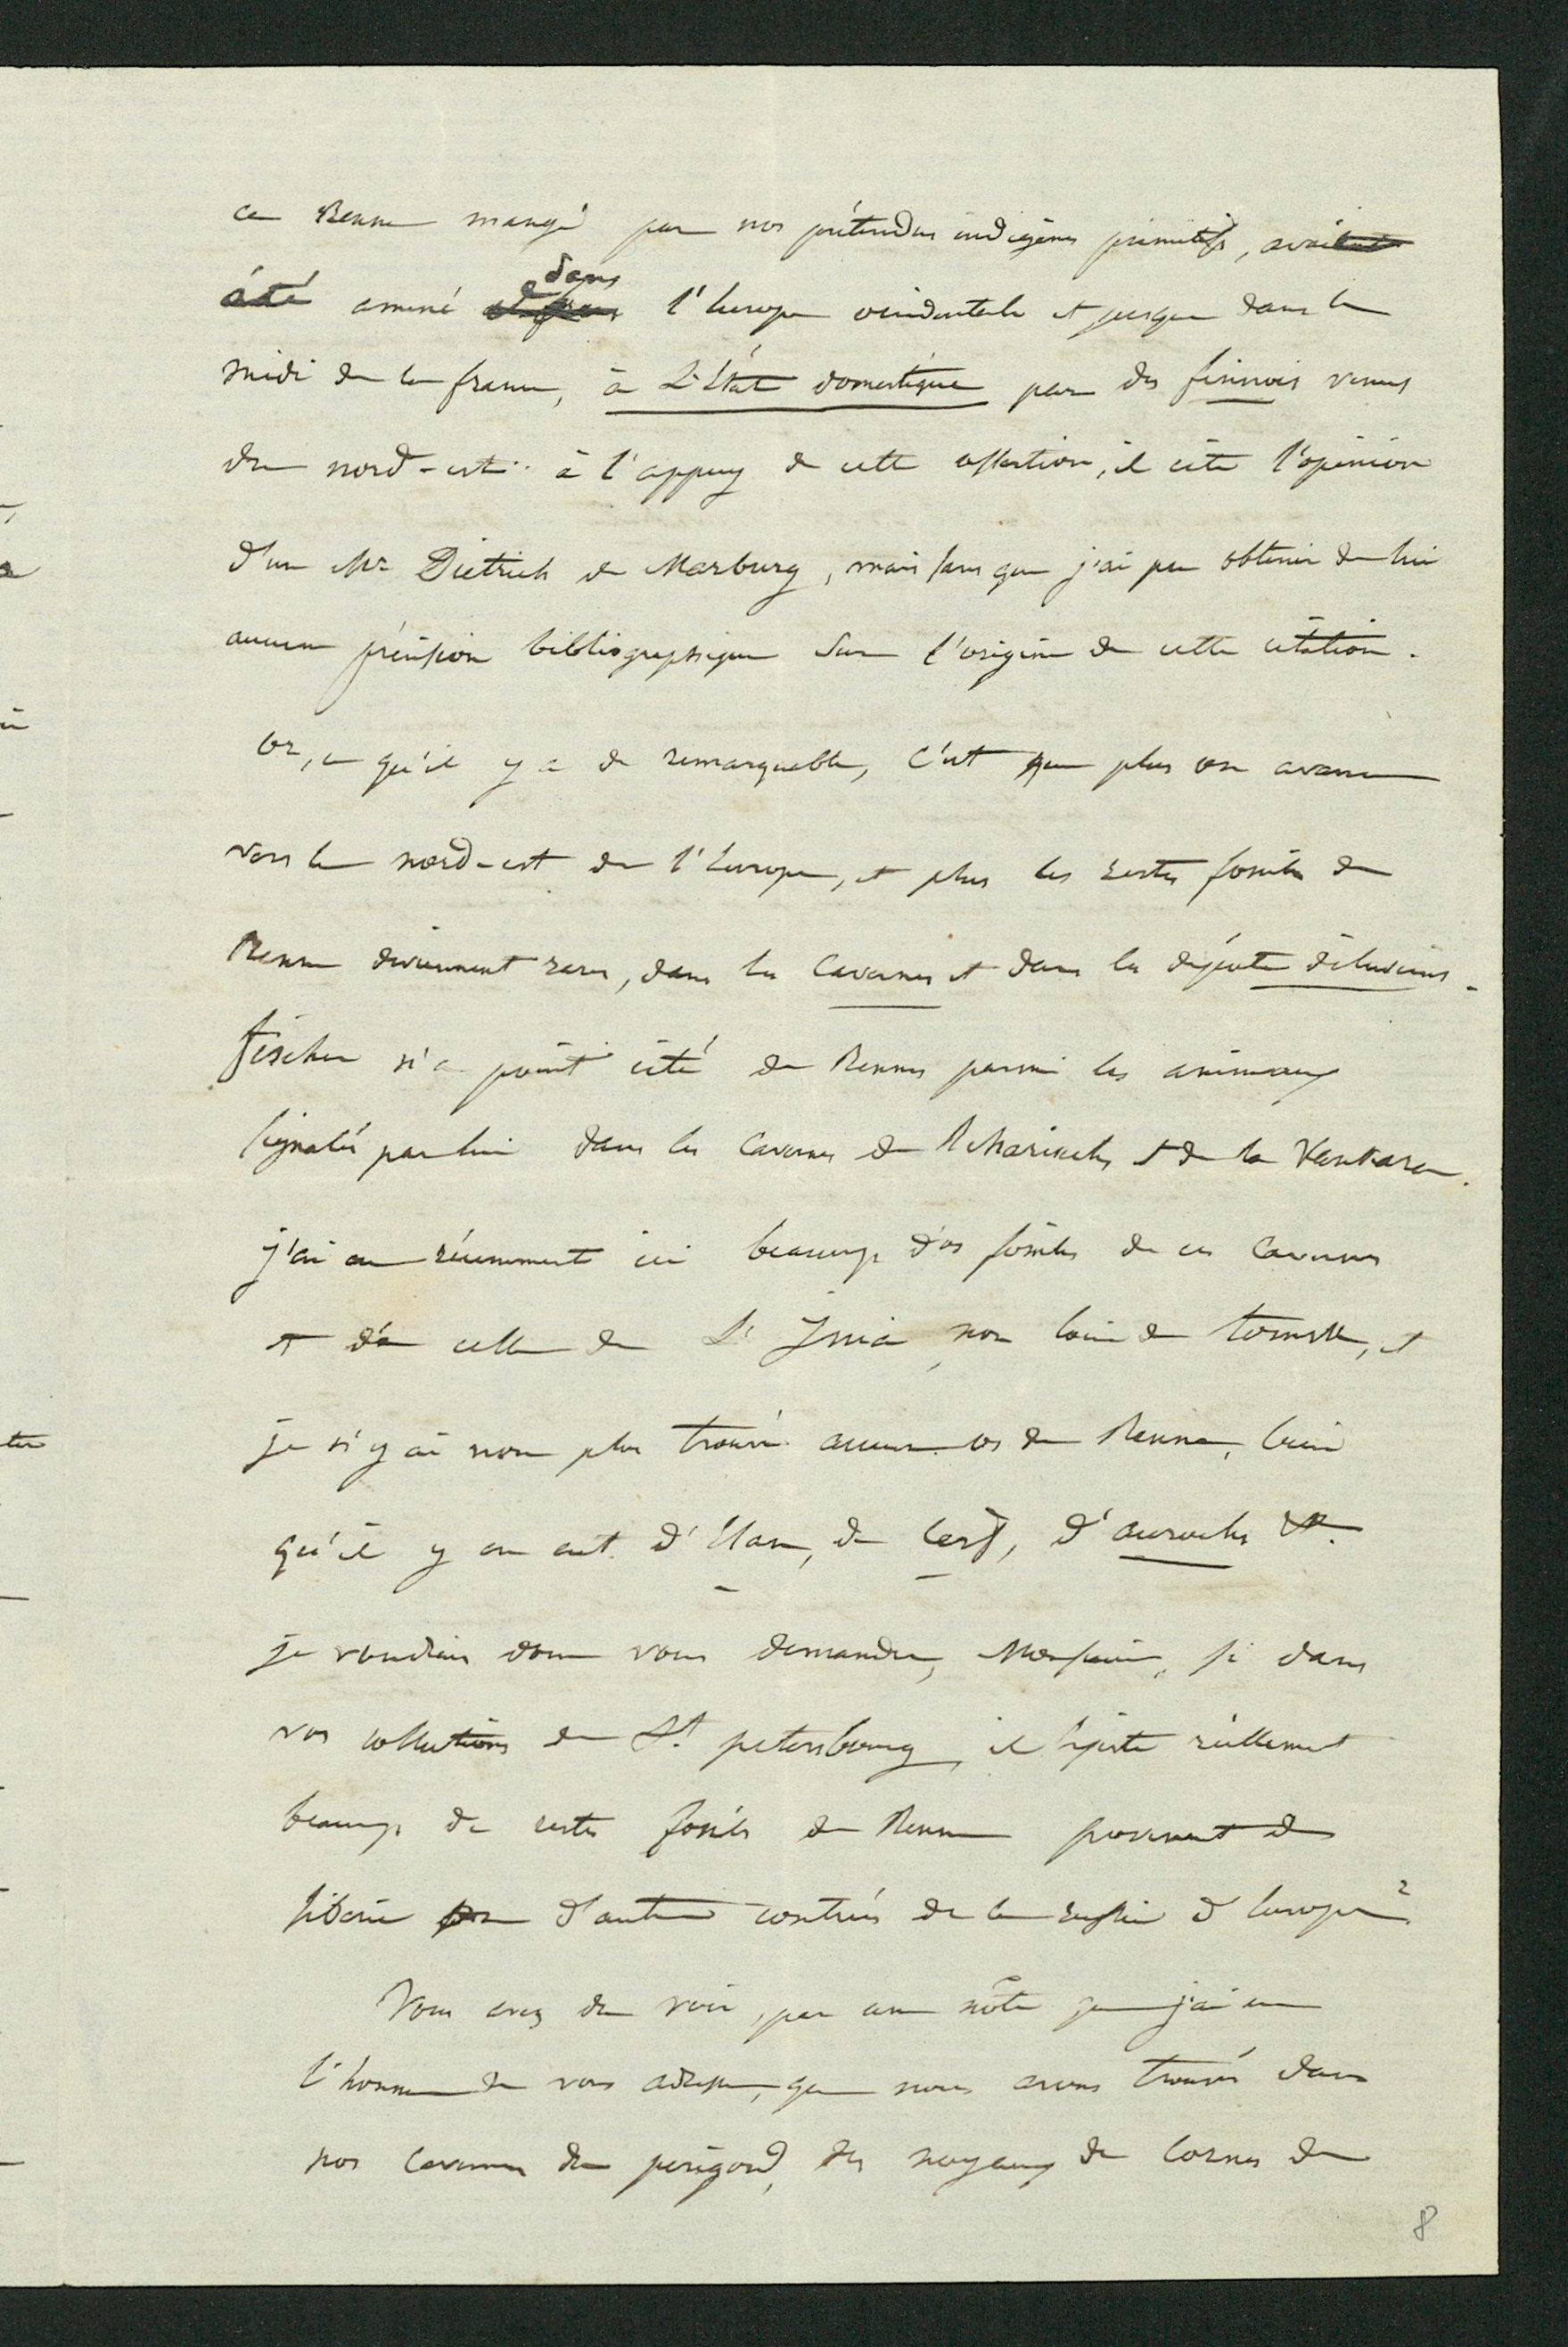 ce Renne mangé par nos prétendus indigènes primitifs, avait
été amené dans l'Europe occidentale et jusque dans le
midi de la france, à L'État domestique par des finnois venus
du nord-est. à l'appuy de cette assertion, il cite l'opinion
d'un Mr Dietrich de Marburg, mais sans que j'ai pu obtenir de lui
aucune précision bibliographique sur l'origine de cette citation.
Or, ce qu'il y a de remarquable, c'est que plus on avance
vers le nord-est de l'Europe, et plus les restes fossiles de
Renne deviennent rares, dans les cavernes et dans les dépôts diluviens.
fischer n'a point cité de Rennes parmi les animaux
signalés par lui dans les cavernes de et de la Kankara.
j'ai eu récemment ici beaucoup d'os fossiles de ces cavernes
et de celle de non loin de tomsk, et
je n'y ai non plus trouvé aucun os de Renne, bien
qu'il y en eut d'Élan, de Cerf, d'aurochs &c.
je voudrais donc vous demander, Monsieur, si dans
vos collections de St petersbourg, il existe réellement
beaucoup de restes fossiles de Renne provenant de
sibérie ou d'autres contrées de la russie d'Europe?
Vous avez du voir, par une nôte que j'ai eu
l'honneur de vous adresser, que nous avons trouvés dans
nos cavernes du perigord, des noyaux de cornes de
8